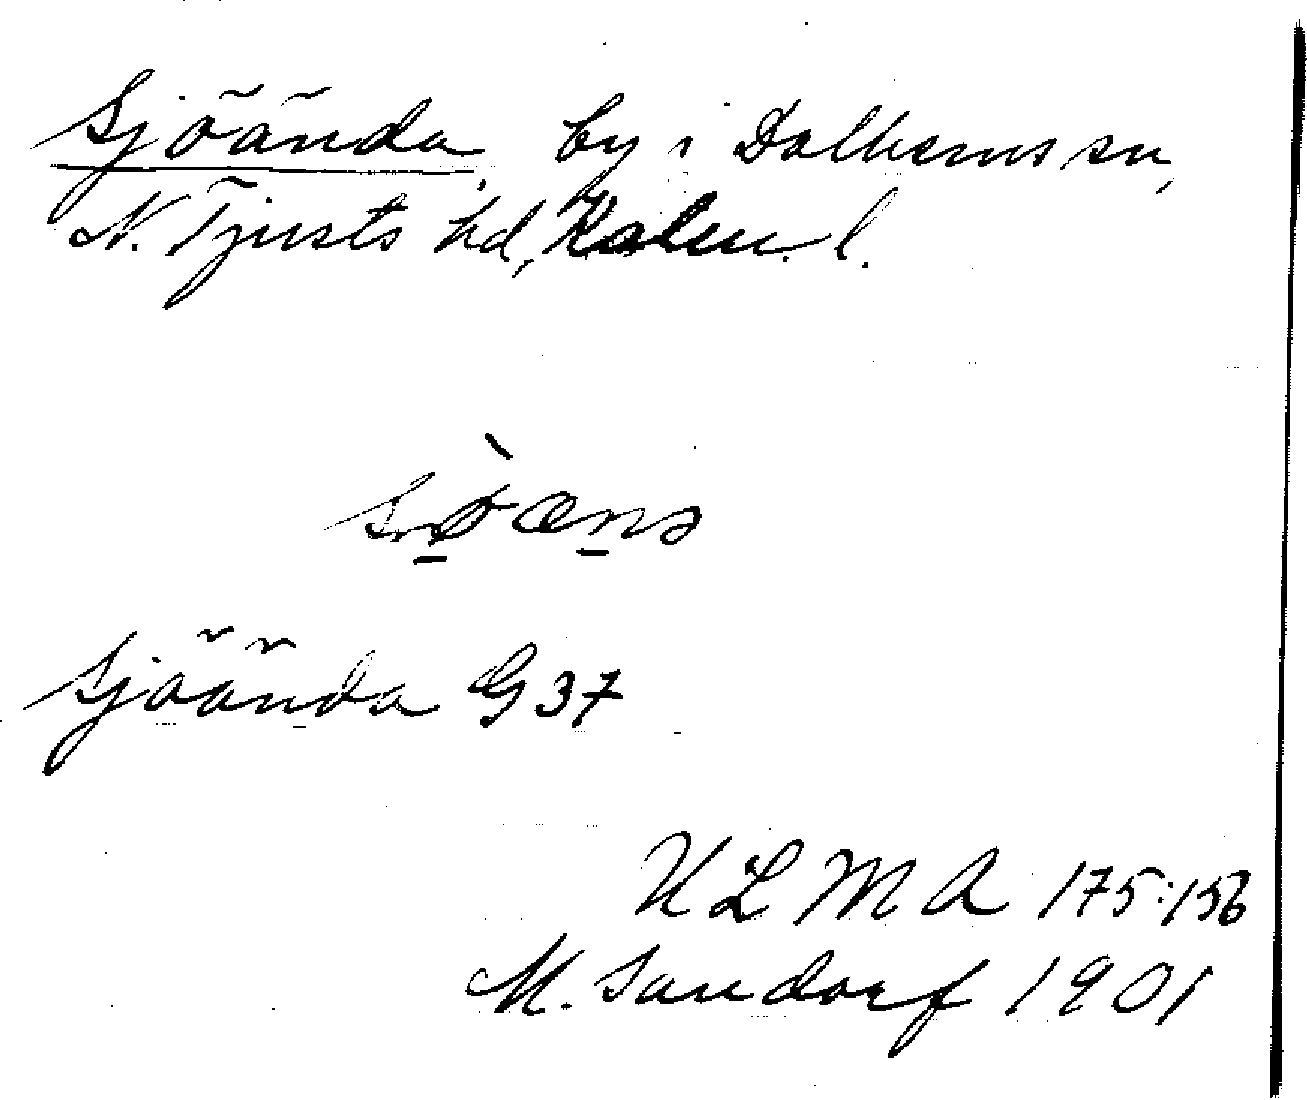 Sjöända, by i Dalhems sn,
N. Tjusts hd, Kalm. l.
Sjöända G 37
ULMA 175:156
M. Sandorf 1901